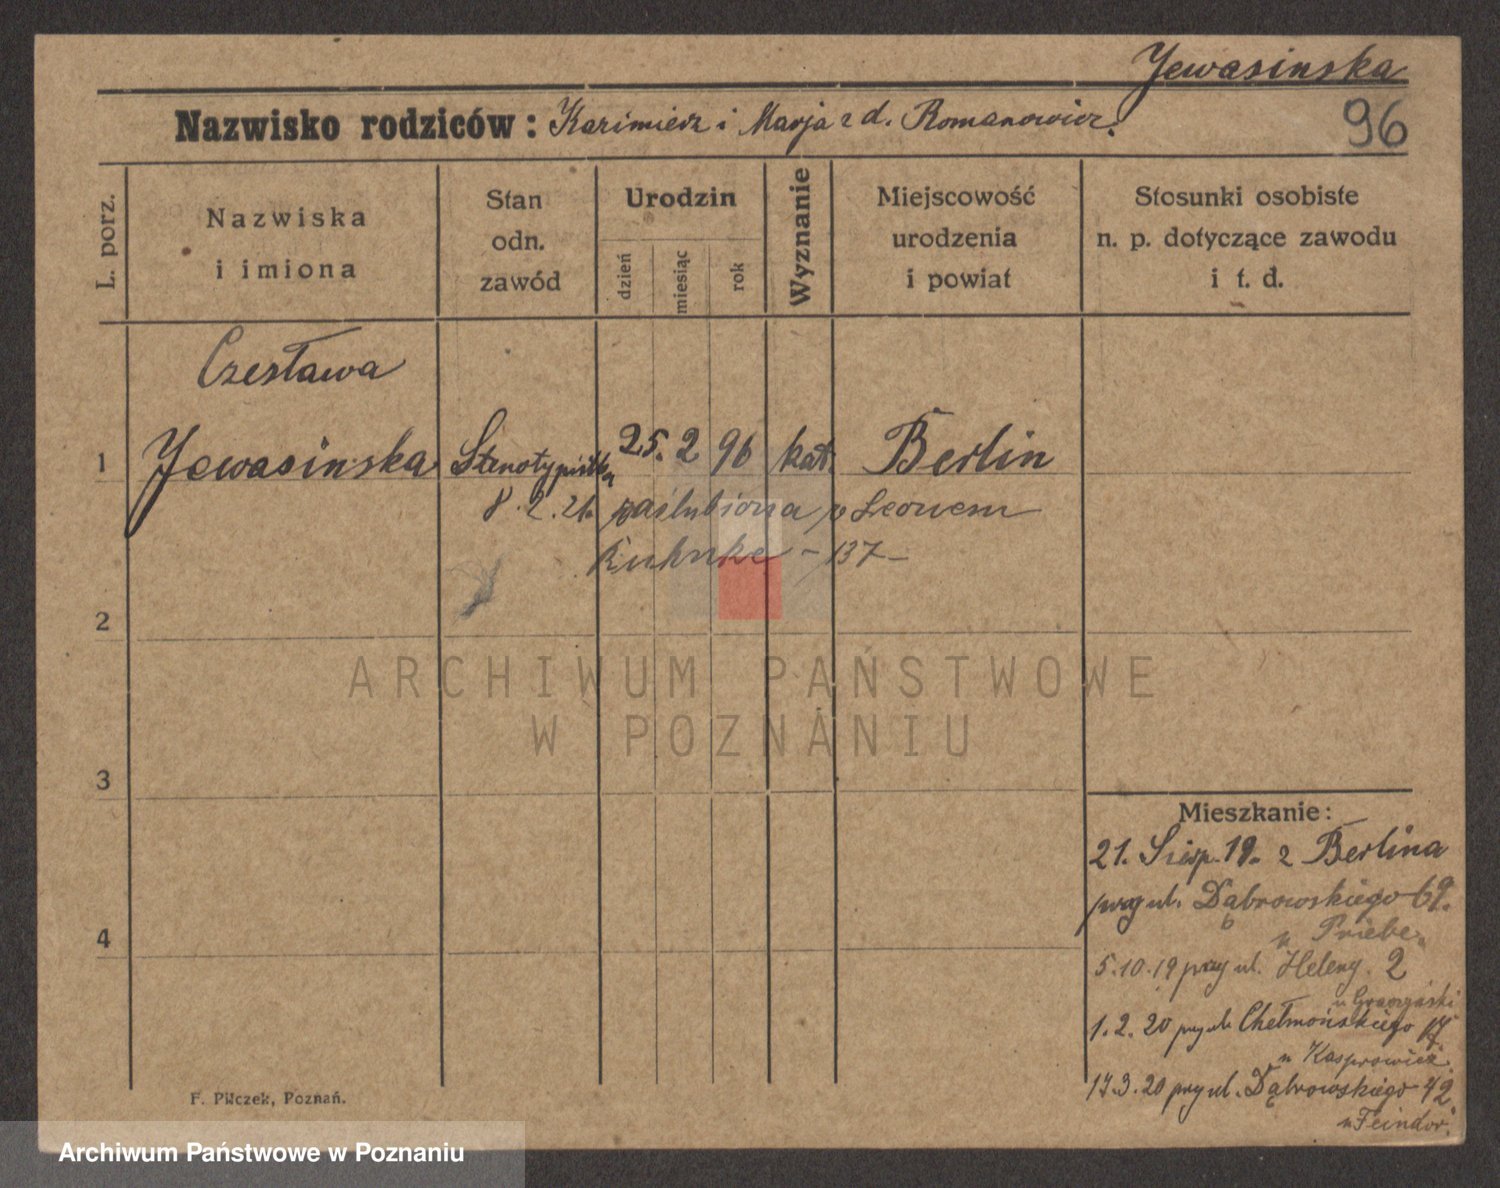 Jewasinska
Nazwisko rodziców: Kazimierz i Marja z d. Romanowicz.
96
L. porz.
Nazwiska
i imiona
Stan
odn.
zawód
Urodzin
dzień
miesiąc
rok
Wyznanie
Miejscowość
urodzenia
i powiat
Stosunki osobiste
n. p. dotyczące zawodu
i t. d.
Czesława
1 Jewasinska Stenotypistka 25. 2 96 kat. Berlin
8. 2. 21. zaślubiona z Leonem
Kuhnke - 137 -
2
ARCHIWUM PAŃSTWOWE
W POZNANIU
3
Mieszkanie:
21. Sierp. 19. z Berlina
przy ul. Dąbrowskiego 69.
u Priebe
4
5.10.19 przy ul. Heleny. 2
u
1. 2. 20 przy ul. Chełmońskiego 17
u Kasprowicz
17.3.20 przy ul. Dąbrowskiego 42
u Feindor
F. Pilczek, Poznań.
Archiwum Państwowe w Poznaniu